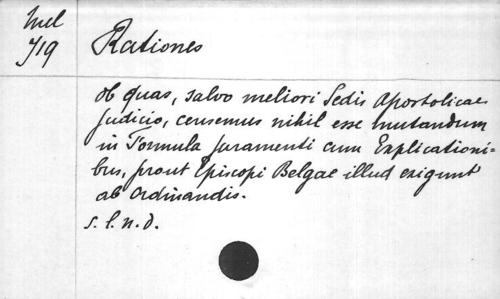 Mel
719
Rationes
ob quas, salvo meliori Sedis Apostolicae
judicio, censemus nihil esse mutandum
in Formula juramenti cum Explicationi-
bus, prout Episcopi Belgae illud exigunt
ab ordinandis.
s. l. n. d.